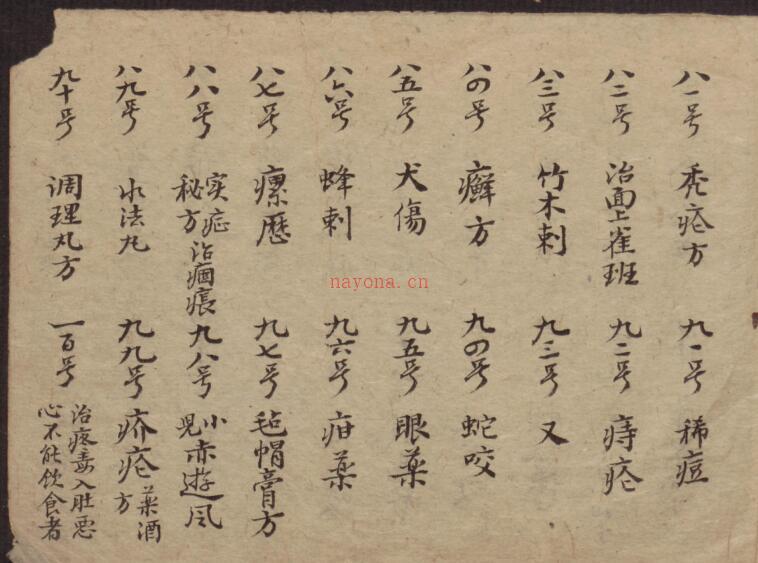 八一号 秃疮方 九一号 稀痘
八二号 治面上雀班 九二号 痔疮
八三号 竹木刺 九三号 又
八四号 癬方 九四号 蛇咬
八五号 犬傷 九五号 眼薬
八六号 蜂刺 九六号 疳薬
八七号 瘰歷 九七号 毡帽膏方
八八号 实症秘方治痕 九八号 小児赤遊风
八九号 水法丸 九九号 疥疮薬酒方
九十号 调理丸方 一百号 治疼毒入肚恶心不能饮食者
nayona.cn